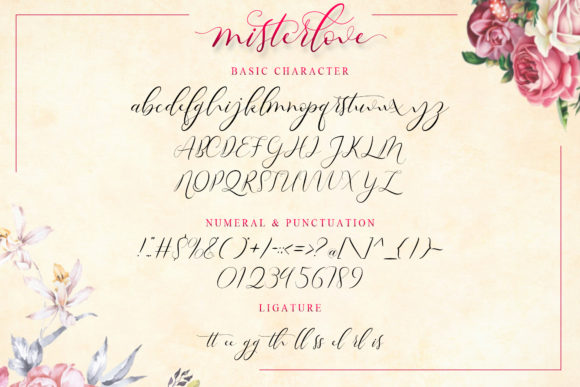 misterlove
BASIC CHARACTER
abcdefghijklmnopqrstuvwxyz
ABCDEFGHIJKLM
NOPQRSTUVWXYZ
NUMERAL & PUNCTUATION
!"#$%&()'+/-:<=>?@[\]^_{|}~
0123456789
LIGATURE
tt ee gg th ll ss el rl is